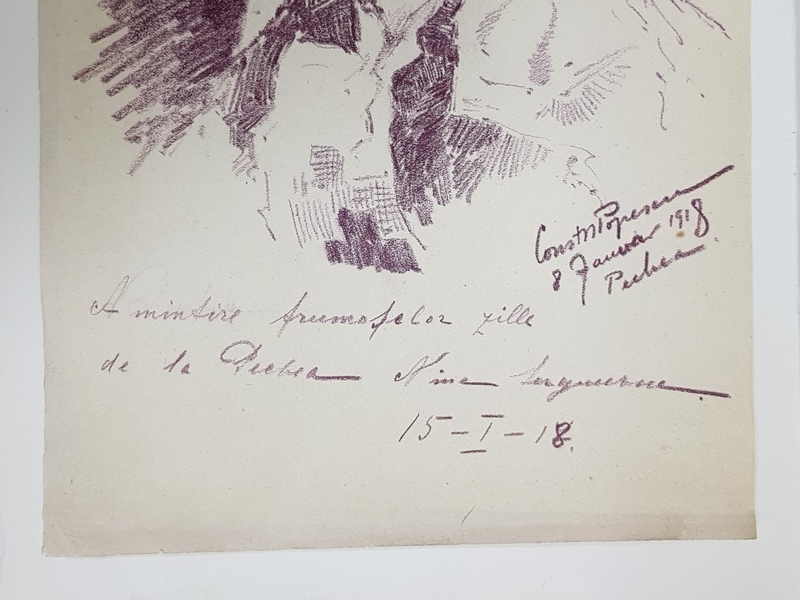 Const Popescu
8 Januar 1918
Pechea.
Amintire frumoselor zille
de la Pechea Nina
15-I-18.